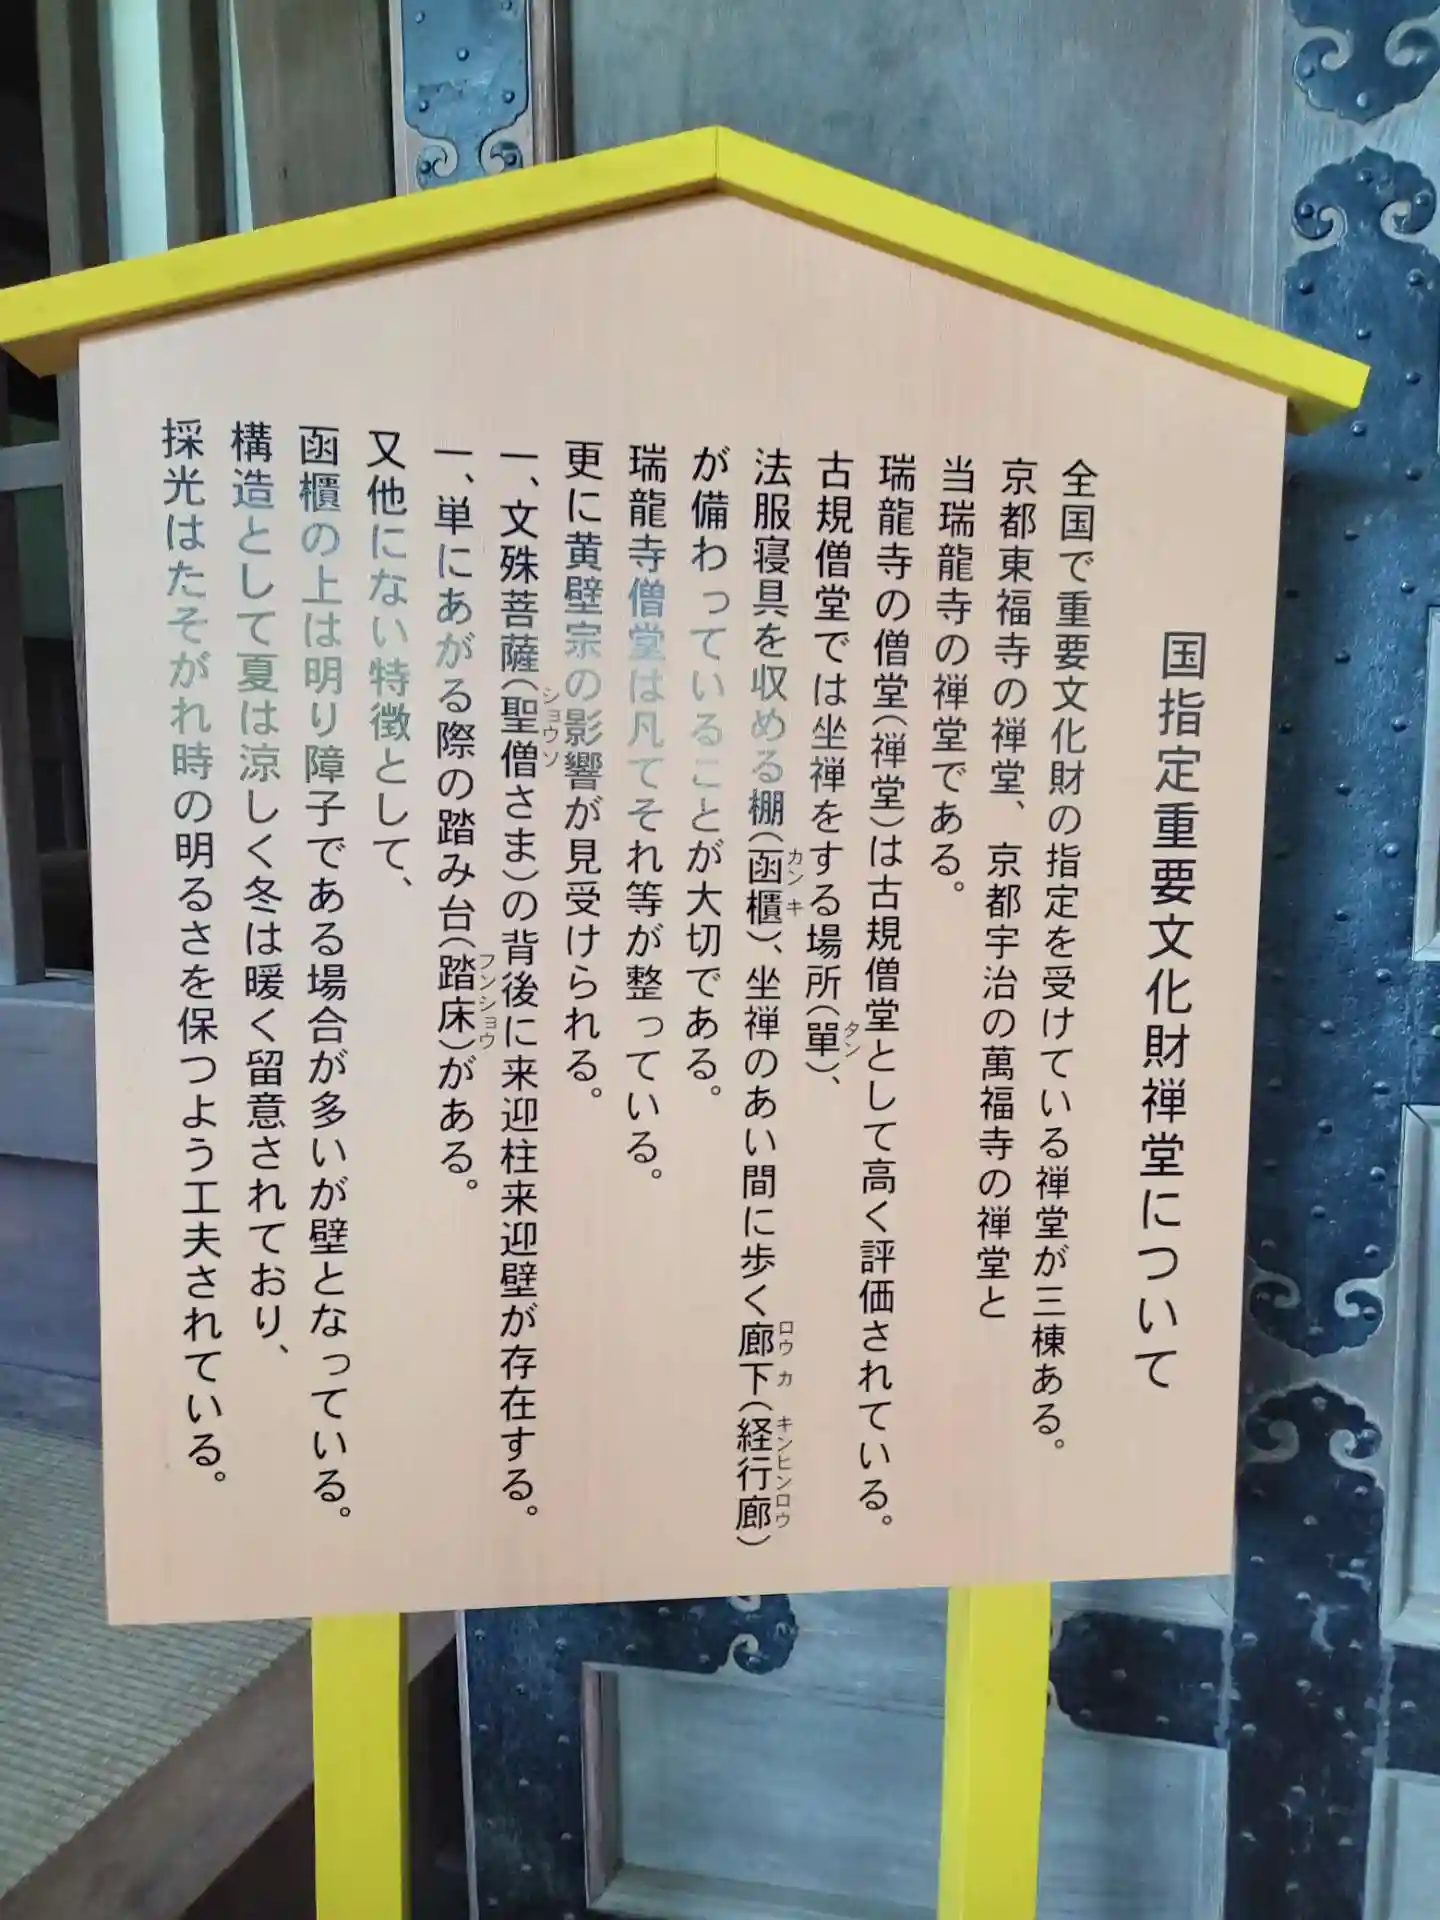 国指定重要文化財禅堂について
全国で重要文化財の指定を受けている禅堂が三棟ある。
京都東福寺の禅堂、京都宇治の萬福寺の禅堂と
当瑞龍寺の禅堂である。
瑞龍寺の僧堂(禅堂)は古規僧堂として高く評価されている。
古規僧堂では坐禅をする場所(單)、
タン
法服寝具を収める棚(函櫃)、坐禅のあい間に歩く廊下(経行廊)
カンキ
ロウカ
キンヒンロウ
が備わっていることが大切である。
瑞龍寺僧堂は凡てそれ等が整っている。
更に黄壁宗の影響が見受けられる。
一、文殊菩薩(聖僧さま)の背後に来迎柱来迎壁が存在する。
ショウソ
一、単にあがる際の踏み台(踏床)がある。
フンショウ
又他にない特徴として、
函櫃の上は明り障子である場合が多いが壁となっている。
構造として夏は涼しく冬は暖く留意されており、
採光はたそがれ時の明るさを保つよう工夫されている。